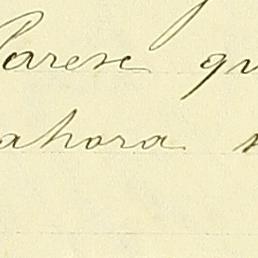 Parese qu
ahora